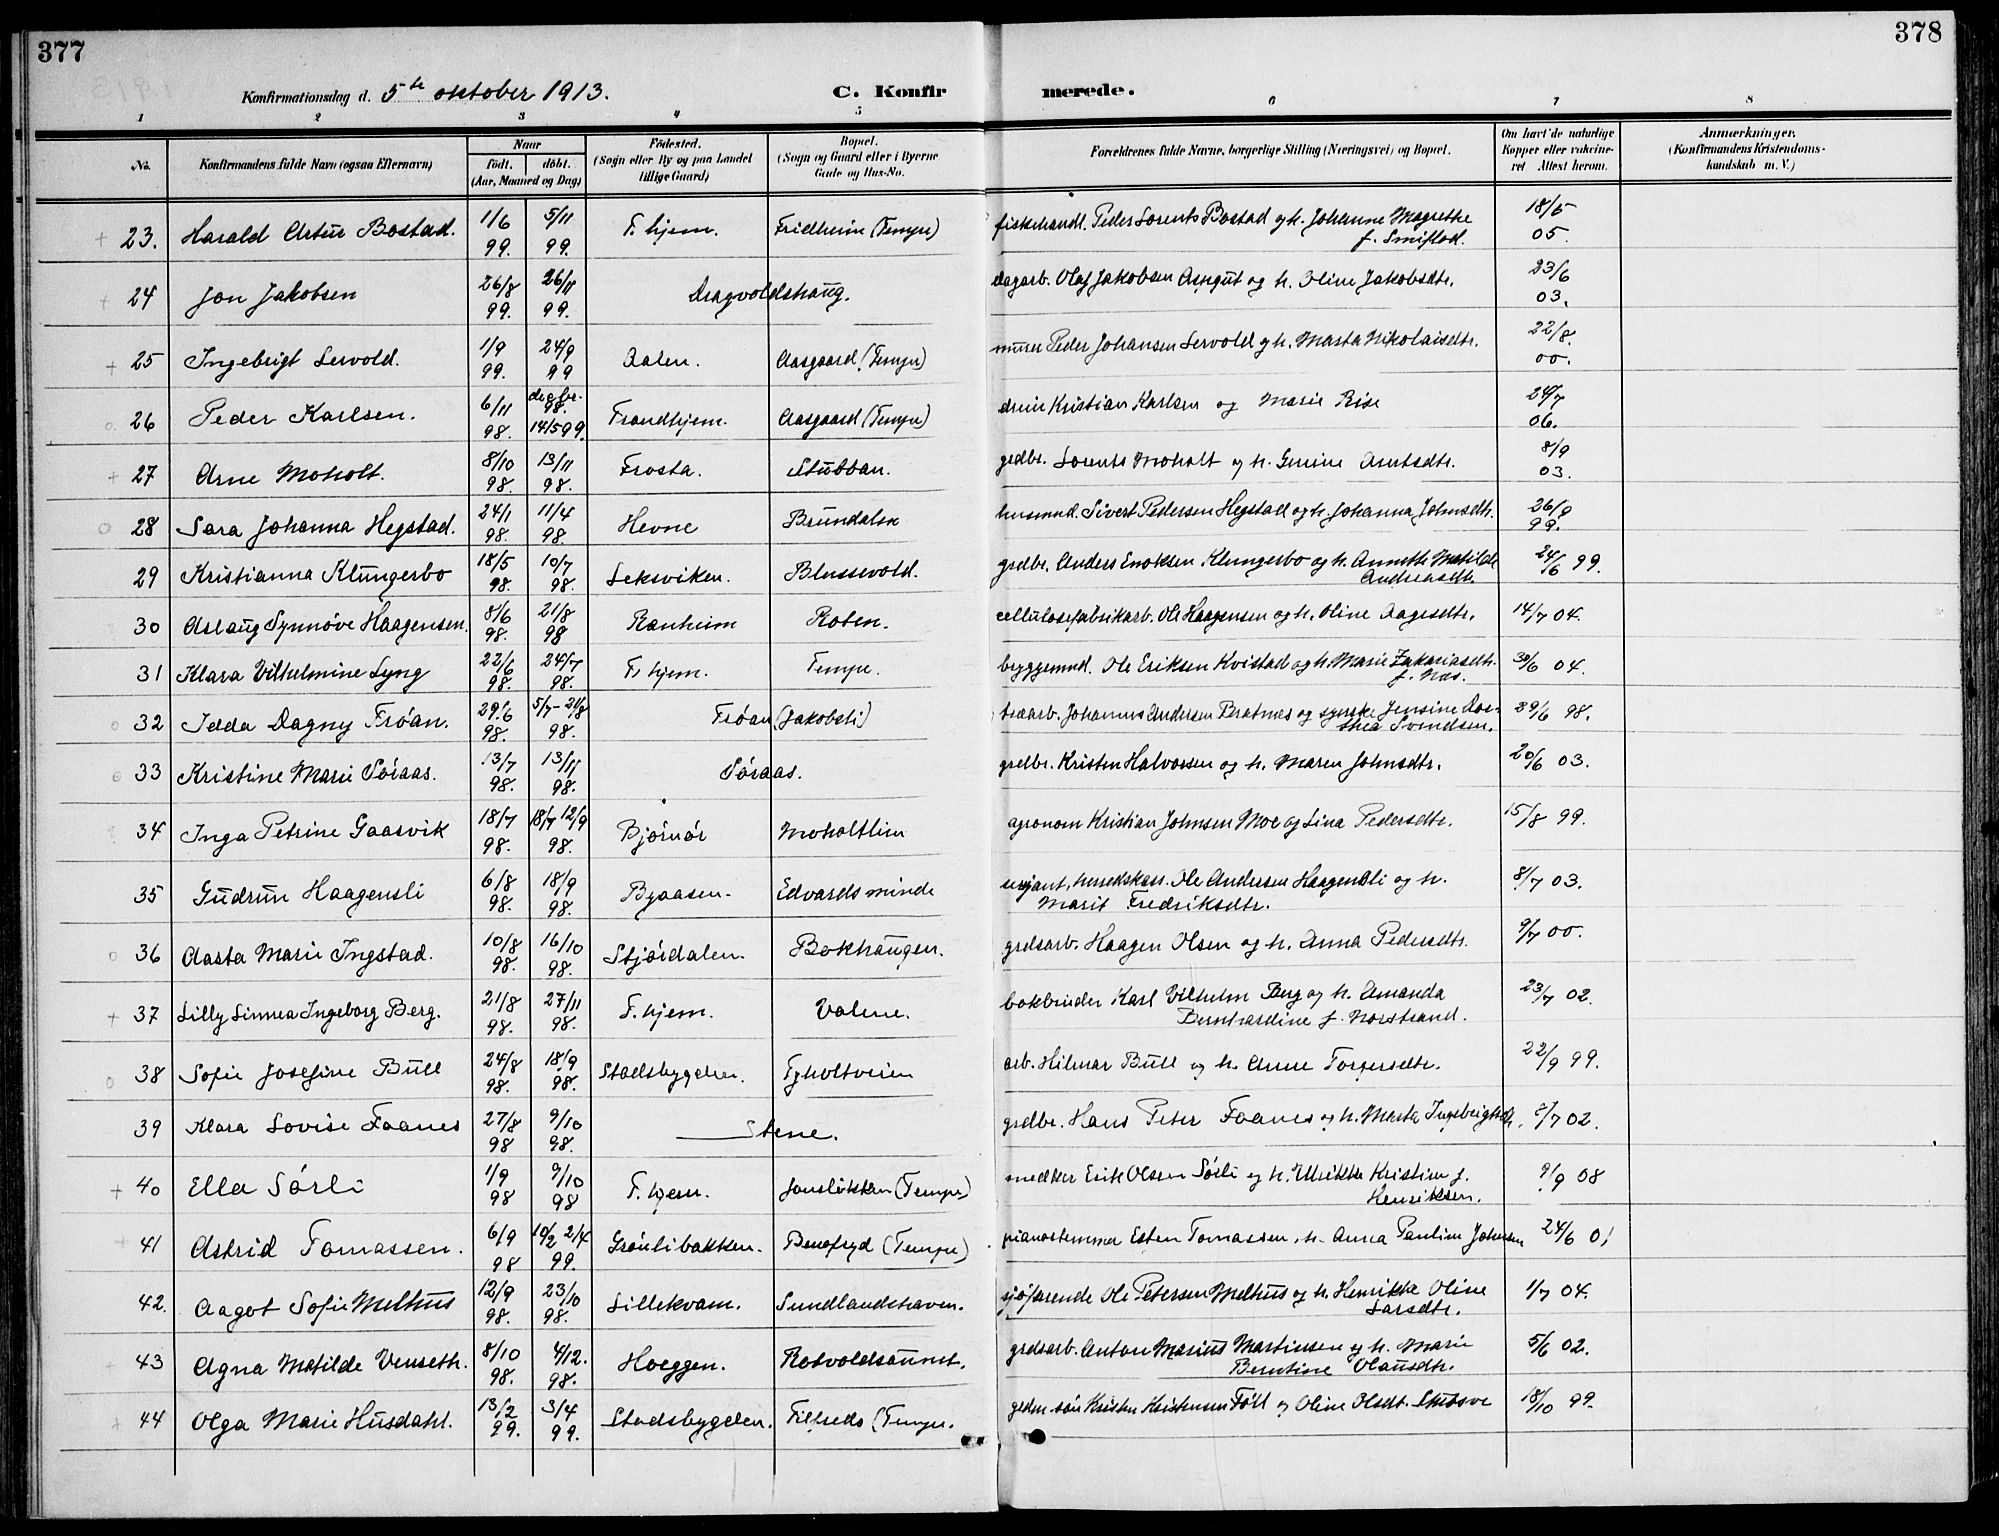 377
378
Konfirmationsdag d. 5te oktober 1913.
C. Konfirmerede.
1 2 3 4 5 6 7 8
No.
Konfirmandens fulde Navn (ogsaa Efternavn)
Naar
födt. döbt.
(Aar, Maaned og Dag)
Födested.
(Sogn eller By og paa Landet tillige Gaard)
Bopæl.
(Sogn og Gaard eller i Byerne Gade og Hus-No.
Forældrenes fulde Navne, borgerlige Stilling (Næringsvei) og Bopæl.
Om havt de naturlige Kopper eller vakcineret Attest herom.
Anmærkninger.
(Konfirmandens Kristendomskundskab m. V.)
23. Harald Artur Bostad. 1/6 99. 5/11 99. T.hjem. Fridheim (Tempe) fiskehandl. Peder Lorents Bostad og h. Johanne Magrethe f. 18/5 05.
24 Jon Jakobsen 26/8 99. 26/11 99. Dragvoldshaug. dagarb. Olaf Jakobsen og h. Oline Jakobsdtr. 23/6 03.
25 Ingebrigt Lervold. 1/9 99. 24/9 99 Aalen. Aasgaard (Tempe) murer Peder Johansen Lervold og h. Marta Nikolaisdtr. 22/8. 00.
26 Peder Karlsen. 6/11 98. 98. 14/5 99. Trondhjem. Aasgaard (Tempe) Kristian Karlsen og Marie Rise 24/7 06.
27 Arne Moholt. 8/10 98. 13/11 98. Frosta. Stubban. grdbr. Lorents Moholt og h. Gurine Arntsdtr. 8/9 03.
28 Sara Johanna Hegstad. 24/1 98. 11/4 98. Hevne Brundalsk husmnd. Sivert Pedersen Hegstad og h. Johanna Johnsdtr. 26/9 99.
29 Kristianna Klungerbo 18/5 98. 10/7 98. Leksviken. Blussevold. grdbr. Anders Enoksen Klungerbo og h. Annette Matilde Andreasdtr. 24/6 99.
30 Aslaug Synnöve Haagensen. 8/6 98. 21/8 98 Ranheim Roten. cellulosefabrikarb. Ole Haagensen og h. Oline Aagesdtr. 14/7 04.
31 Klara Vilhelmine Lyng 22/6 98. 24/7 98. T.hjem. Tempe. byggemnd. Ole Eriksen Kvistad og h. Marie Zakariasdtr. f. Næs. 30/6 04.
32 Jedda Dagny Fröan. 29/6 98. 5/7 - 21/8 98. Fröan (Jakobsli) træarb. Johannes Andersen Bratnes og syerske Jensine Dorthea Svendsen. 29/6 98.
33 Kristine Marie Söraas. 13/7 98. 13/11 98. Söraas. grdbr. Kristen Halvorsen og h. Maren Johnsdtr. 20/6 03.
34 Inga Petrine Gaasvik 18/7 98. 18/7 12/9 98. Björnör Moholtlien agronom Kristian Johnsen Moe og Lina Pedersdtr. 15/8 99.
35 Gudrun Haagensli 6/8 98. 18/9 98. Byaasen. Edvardsminde serjant, herredskass. Ole Andersen Haagensli og h. Marit Fredriksdtr. 8/7 03.
36 Aasta Marie Ingstad. 10/8 98. 16/10 98. Stjördalen. Bokhaugen. grdsarb. Haagen Olsen og h. Anna Pedersdtr. 9/7 00.
37 Lilly Linnea Ingeborg Berg. 21/8 98. 27/11 98. T.hjem. Valene. bokbinder Karl Vilhelm Berg og h. Amanda Bernhardine f. Norstrand. 23/7 02.
38 Sofie Josefine Bull 24/8 98. 18/9 98. Stadsbygden. Tyholtveien arb. Hilmar Bull og h. Anne Torgersdtr. 22/9 99.
39 Klara Lovise Faanes 27/8 98 9/10 98. Stene. grdbr. Hans Peter Faanes og h. Marta Ingebrigtsdtr. /7 02.
40 Ella Sörli 1/9 98 9/10 98 T.hjem. Jonslökken (Tempe) snedker Erik Olsen Sörli og h. Ulrikke Kristine f. Henriksen. 9/9 08
41 Astrid Tomassen. 6/9 98 10/2 2/4 99. Grönlibakken. Benefryd (Tempe) pianostemmer Esten Tomassen, h. Anna Pauline Johnsen 24/6 01
42. Aagot Sofie Melhus 12/9 98. 23/10 98. Lillekvam. Sundlandshaven. sjöfarende Ole Petersen Melhus og h. Henrikke Oline Larsdtr. 1/7 04.
43 Agna Matilde Venseth. 8/10 98. 4/12. 98. Hoeggen. Rotvoldsaunet. grdsarb. Anton Marius Martinsen og h. Marie Berntine Olausdtr. 5/6 02.
44 Olga Marie Husdahl. 13/2 99. 3/4 99. Stadsbygden. Tilfreds (Tempe. Kristen Kristensen Föll og Oline Olsdt. 18/10 99.